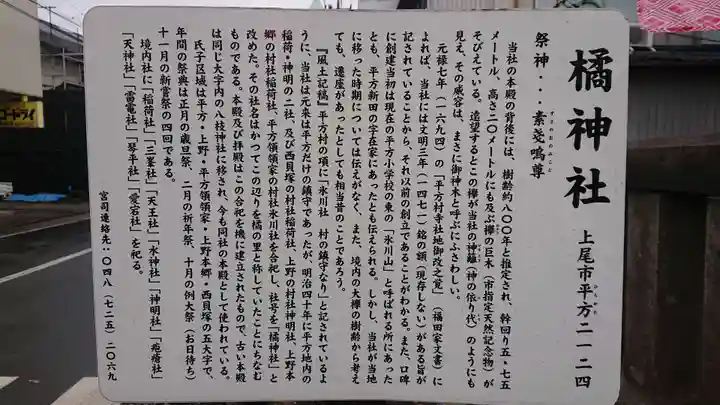 橘神社
上尾市平方二一二四
ひらかた
祭神・・・素戔嗚尊
すさのおのみこと
当社の本殿の背後には、樹齢約八〇〇年と推定され、幹回り五・七五
メートル、高さ二〇メートルにも及ぶ欅の巨木（市指定天然記念物）が
そびえている。遠望するとこの欅が当社の神籬（神の依り代）のようにも
見え、その威容は、まさに御神木と呼ぶにふさわしい。
元禄七年（一六九四）の「平方村寺社地御改之覚」（福田家文書）に
よれば、当社には文明三年（一四七一）銘の額（現存しない）がある旨が
記されていることから、それ以前の創立であることがわかる。また、口碑
に創建当初は現在の平方小学校の東の「氷川山」と呼ばれる所にあった
とも、平方新田の字在家にあったとも伝えられる。しかし、当社が当地
に移った時期については伝えがなく、また、境内の大欅の樹齢から考え
ても、遷座があったとしても相当昔のことであろう。
『風土記稿』平方村の項に「氷川社　村の鎮守なり」と記されているよ
うに、当社は元来は平方だけの鎮守であったが、明治四十年に平方地内の
稲荷・神明の二社、及び西貝塚の村社稲荷社、上野の村社神明社、上野本
郷の村社稲荷社、平方領領家の村社氷川社を合祀し、社号を「橘神社」と
改めた。その社名はかつてこの辺りを橘の里と称していたことにちなむ
ものである。本殿及び拝殿はこの合祀を機に建立されたもので、古い本殿
は同じ大字内の八枝神社に移され、今も同社の本殿として使われている。
氏子区域は平方・上野・平方領領家・上野本郷・西貝塚の五大字で、
年間の祭典は正月の歳旦祭、二月の祈年祭、十月の例大祭（お日待ち）
十一月の新嘗祭の四回である。
境内社に「稲荷社」「三峯社」「天王社」「水神社」「神明社」「疱瘡社」
「天神社」「雷電社」「琴平社」「愛宕社」を祀る。
宮司連絡先：〇四八（七二五）二〇六九
コートドライ